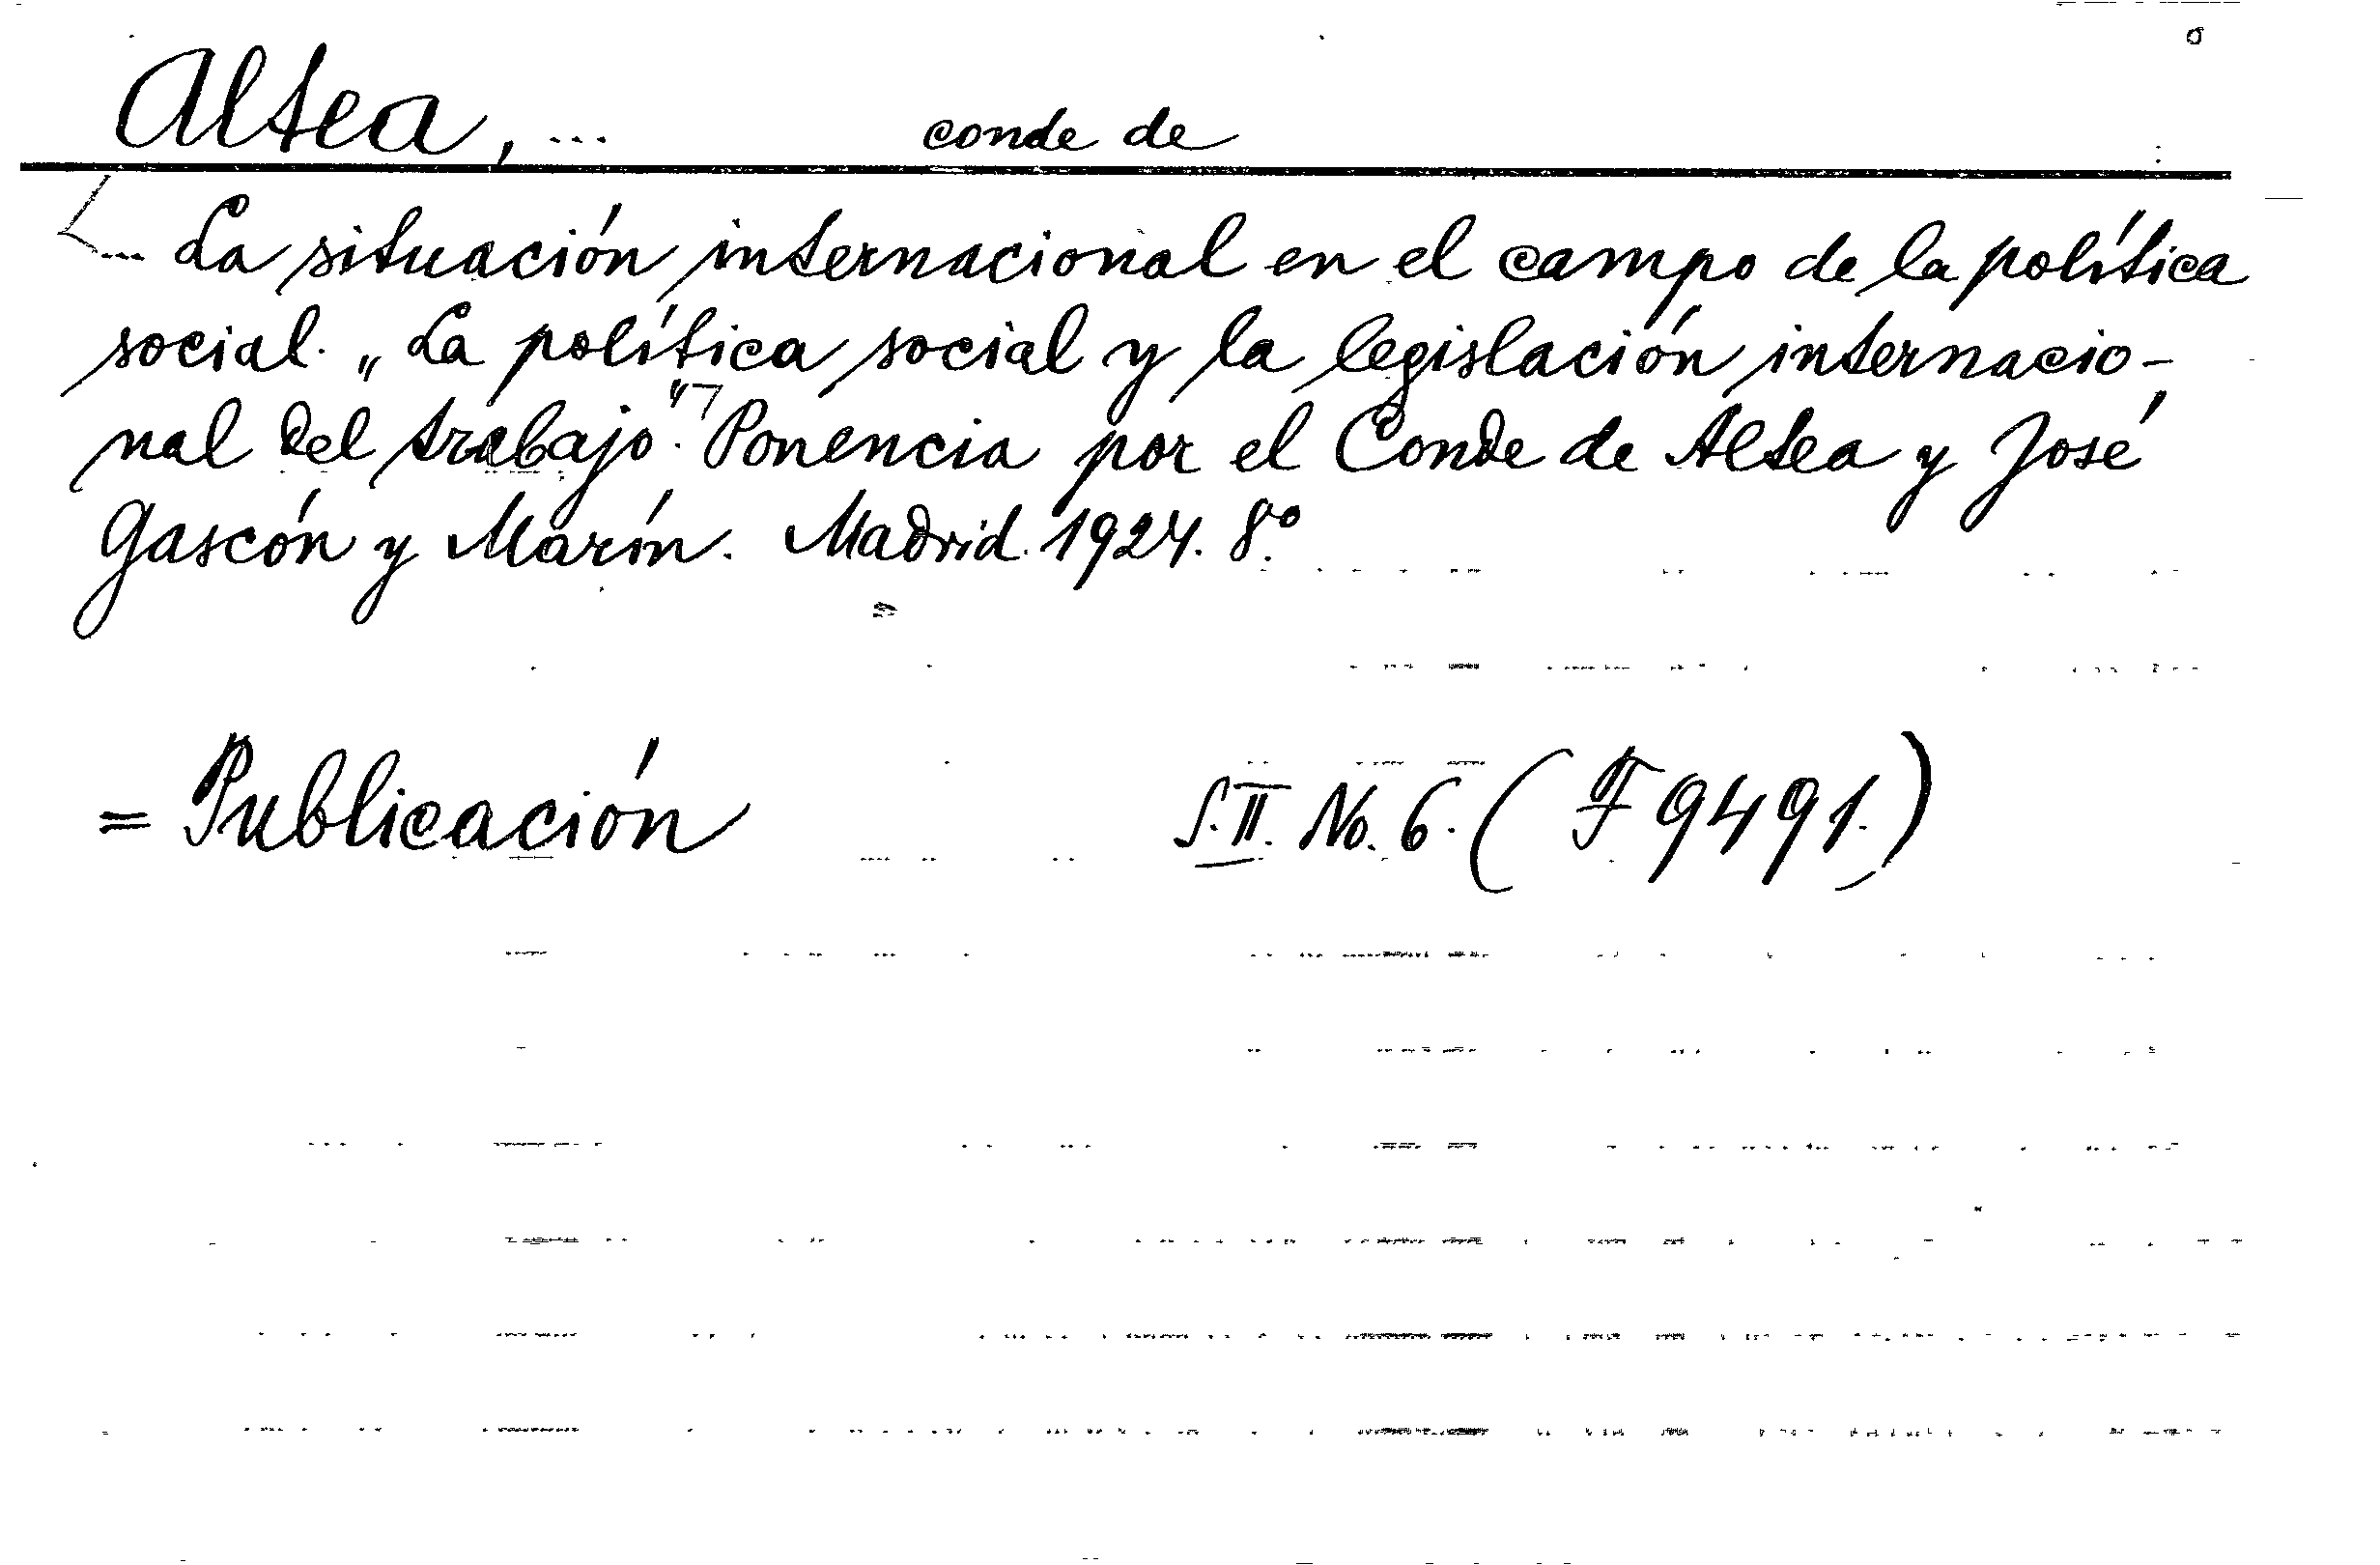 Altea, ... conde de
... La situación internacional en el campo de la política
social. „La política social y la legislación internacio-
nal del trabajo." Ponencia por el Conde de Altea y José
Gascón y Marín. Madrid. 1924. 8.°
= Publicación S. II. No. 6. (F 9491.)